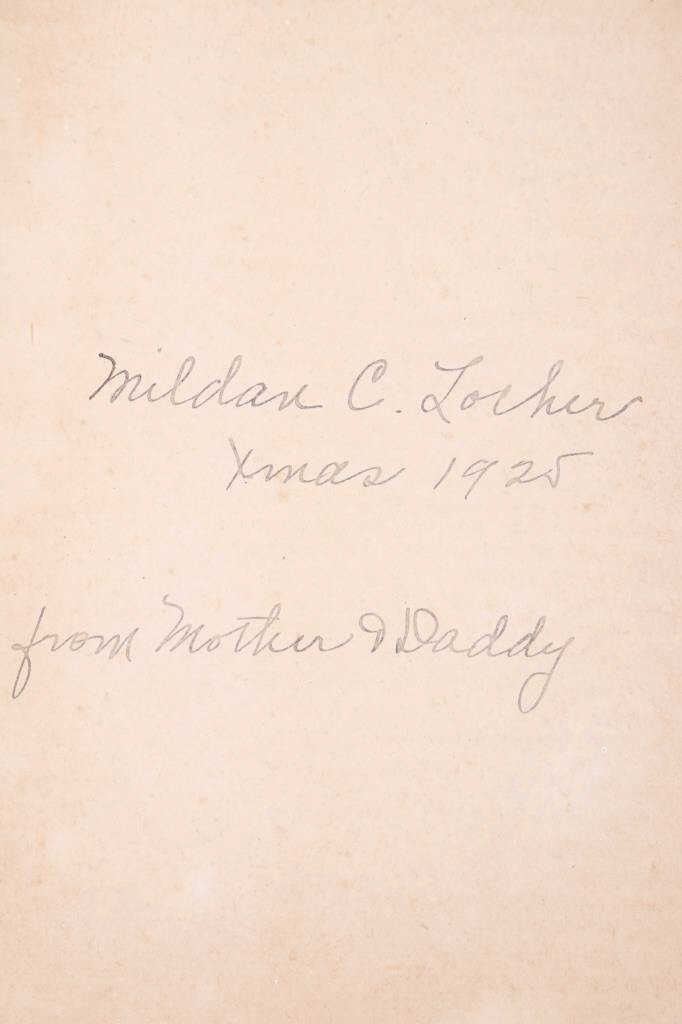 Mildan C. Locher
Xmas 1925
from Mother & Daddy